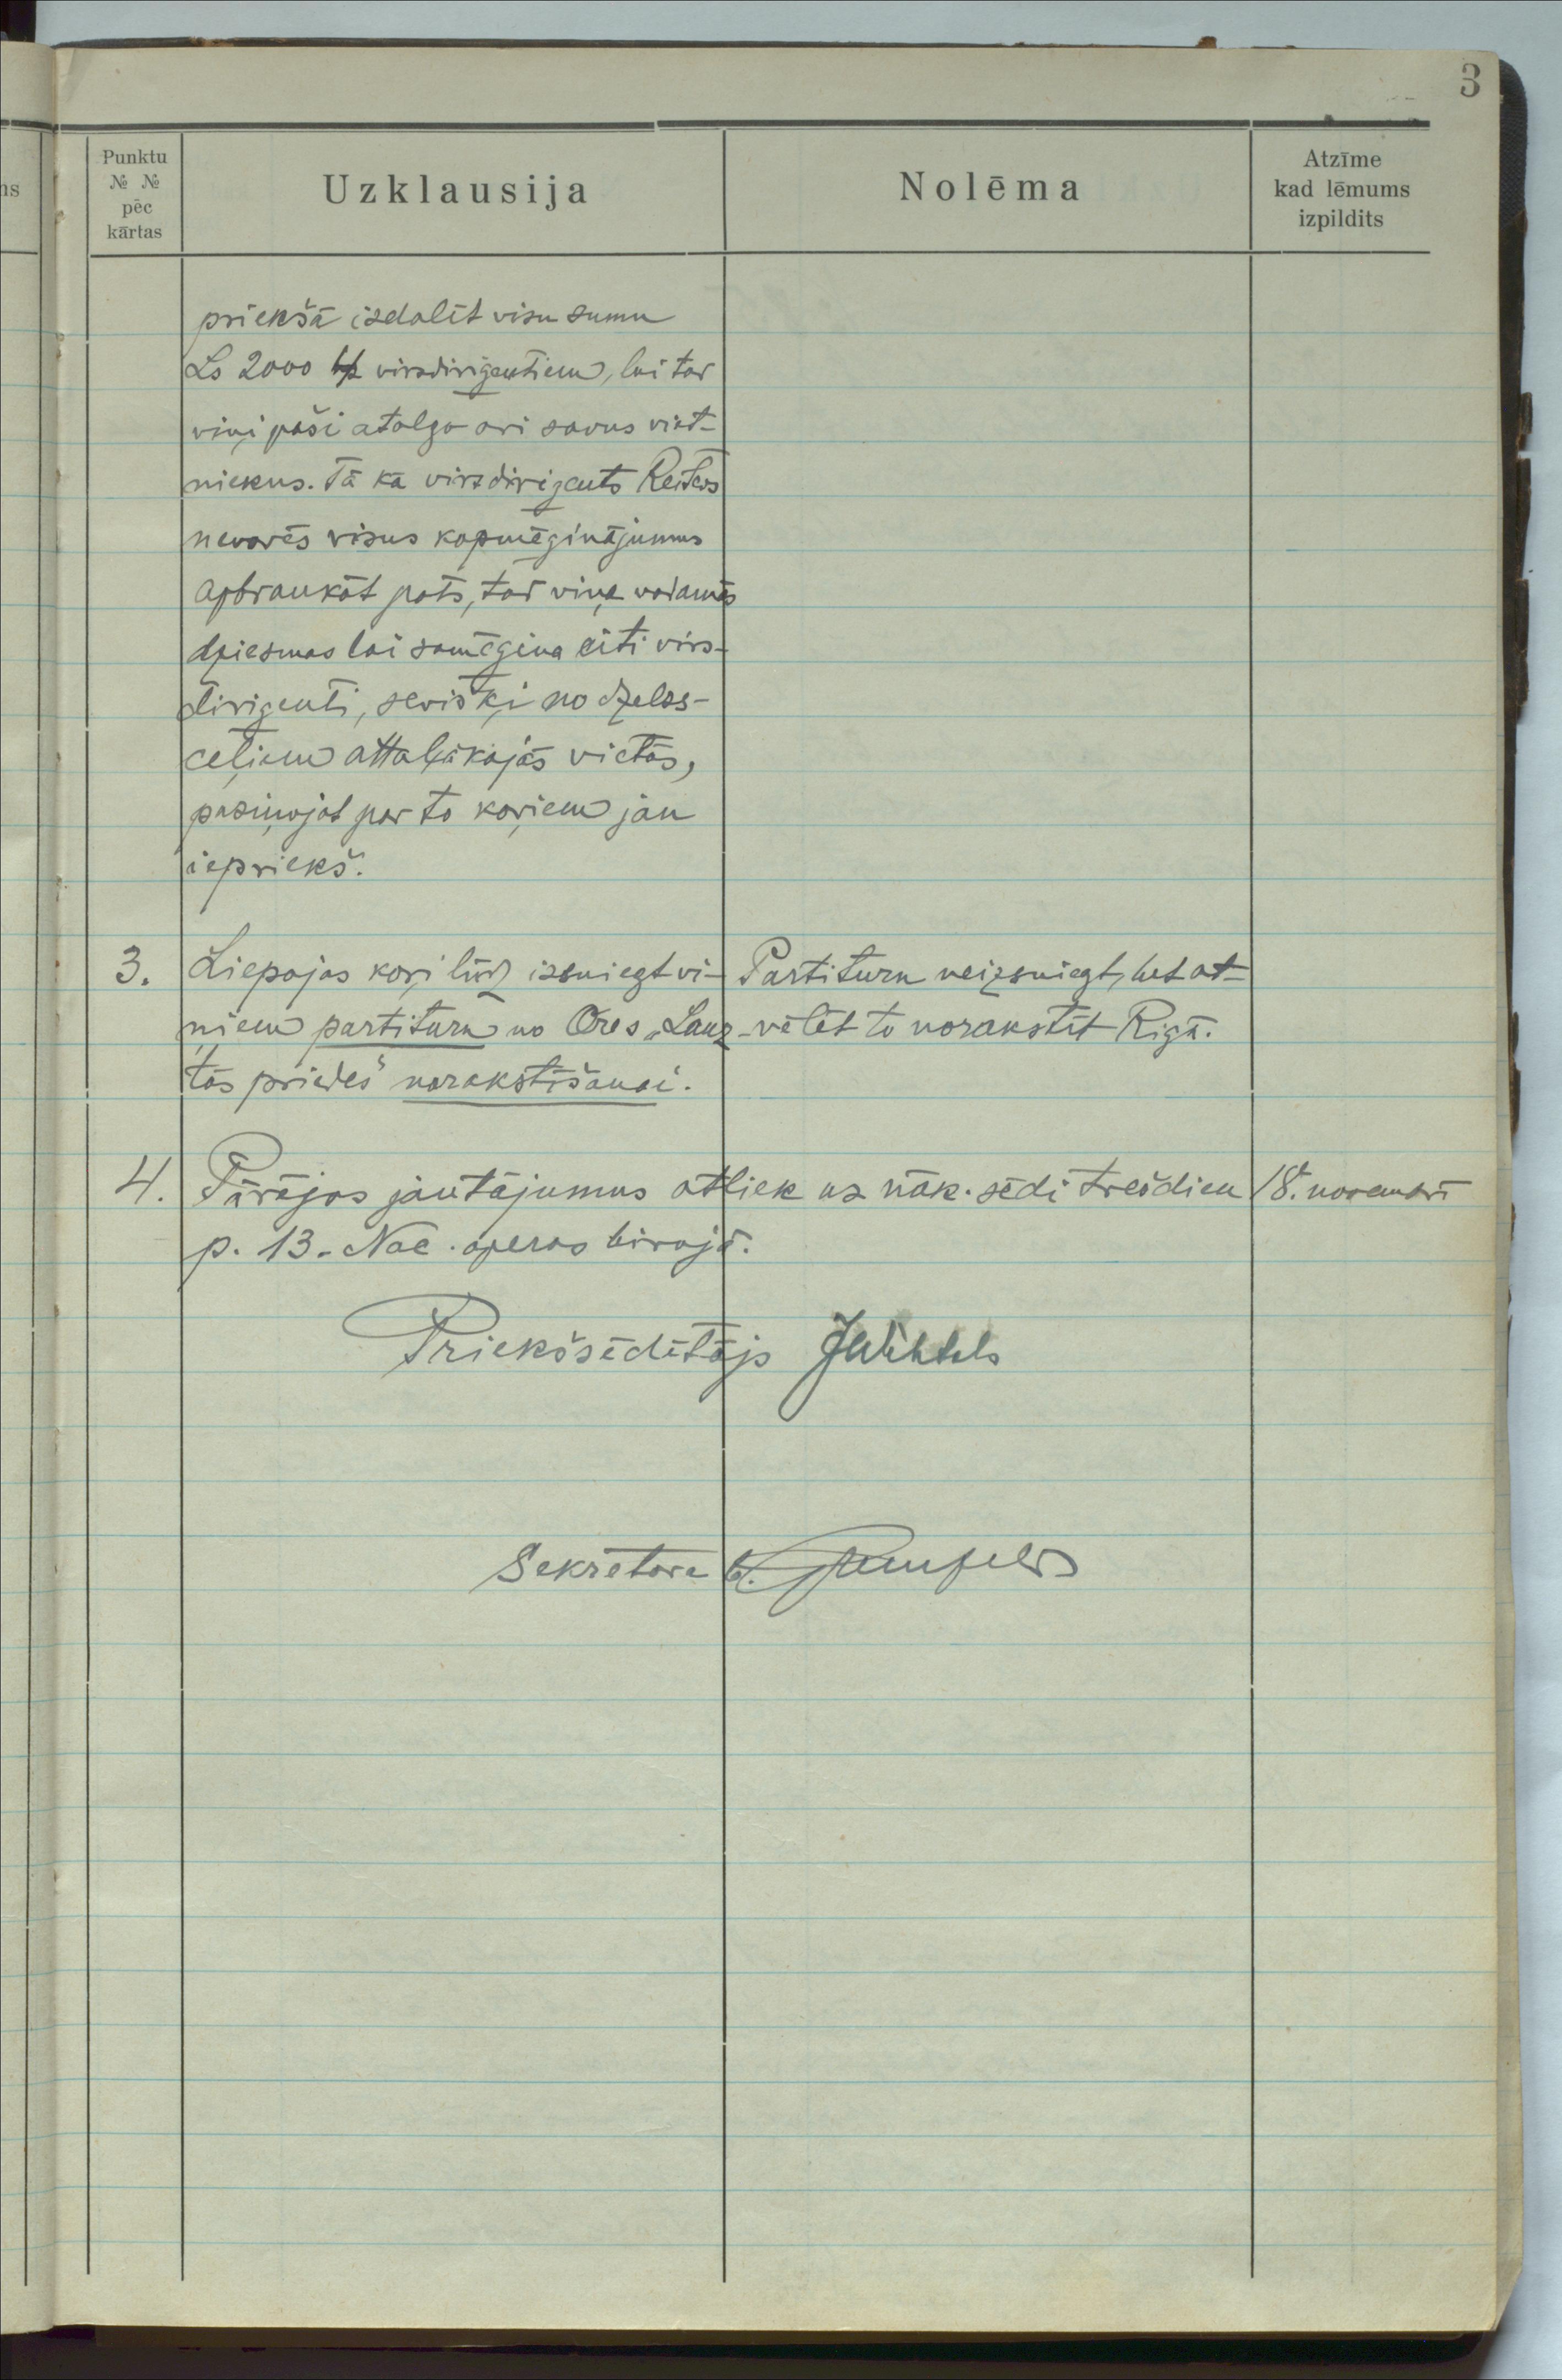 3
Punktu
№ №
pēc
kārtas
Uzklausija
Nolēma
Atzīme
kad lēmums
izpildits
ns
priekšā izdalīt visu sumu
Ls 2000 virsdirigentiem, lai tad
viņi paši atalgo arī savus viet-
niekus. Tā kā virsdirigents Reiters
nevarēs visus kopmēģinājumus
apbraukāt pats, tad viņa vadamās
dziesmas lai samēģina citi virs-
dirigenti, sevišķi no dzelzs-
ceļiem attaļākajās vietās,
paziņojot par to koŗiem jau
iepriekš.
3. Liepajas koŗi lūdz izsniegt vi-
ņiem partituru no Ores „Lauz-
tās priedes" norakstīšanai.
Partituru neizsniegt, bet at-
vēlēt to norakstīt Rigā.
4. Pārējos jautājumus atliek uz nāk. sēdi trešdien 18. novembrī
p. 13. Nac. operas birojā.
Priekšsēdētājs JWihtols
Sekretāra b.